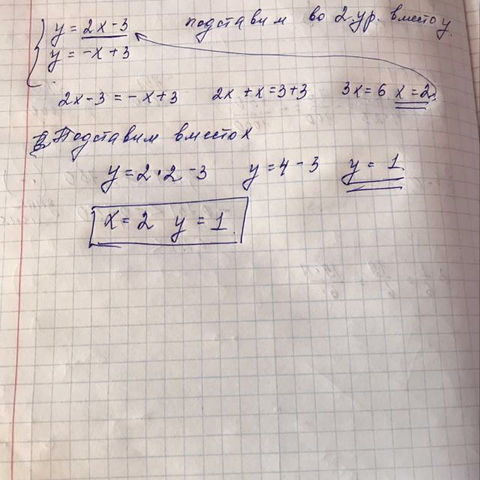 y = 2x - 3 подставим во 2 ур. вместо y
y = -x + 3
2x - 3 = -x + 3 2x + x = 3 + 3 3x = 6 x = 2
Подставим вместо x
y = 2 · 2 - 3 y = 4 - 3 y = 1
x = 2 y = 1